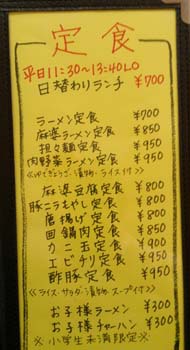 定食
平日11:30~13:40LO
日替わりランチ ¥700
ラーメン定食 ¥700
麻婆ラーメン定食 ¥850
担々麺定食 ¥950
肉野菜ラーメン定食 ¥950
≪ゆでぎょうざ、漬物、ライス付≫
麻婆豆腐定食 ¥800
豚ニラもやし定食 ¥800
唐揚げ定食 ¥800
回鍋肉定食 ¥850
カニ玉定食 ¥900
エビチリ定食 ¥950
酢豚定食 ¥950
≪ライス・サラダ・漬物・スープ付≫
お子様ラーメン ¥300
お子様チャーハン ¥300
※小学生未満限定※